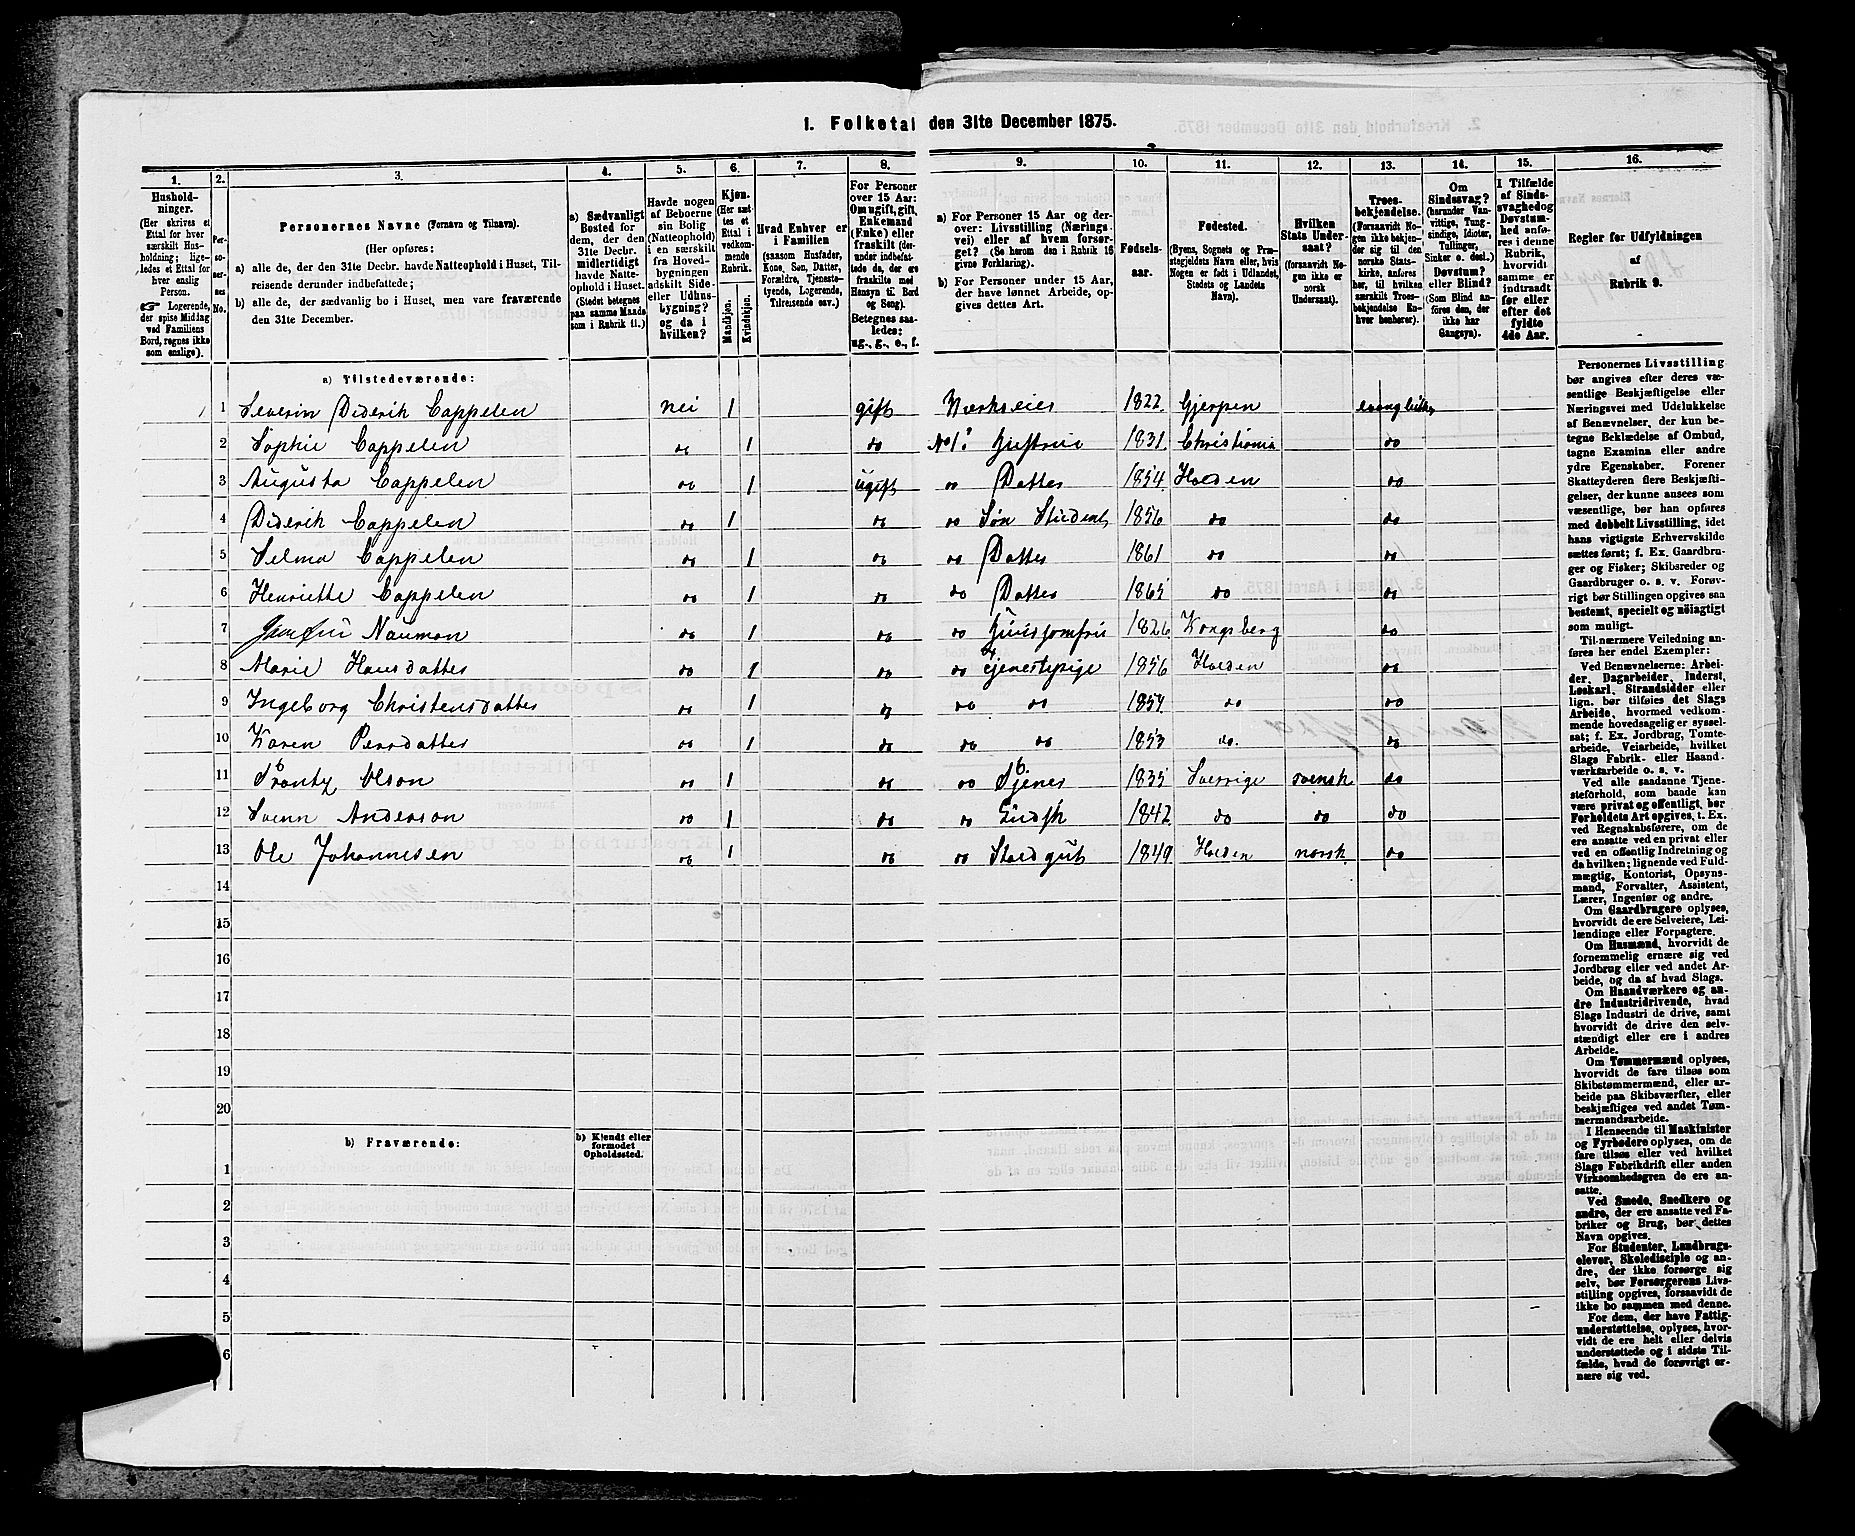 1. Folketal den 31te December 1875.
1. 2. 3. 4. 5. 6. 7. 8. 9. 10. 11. 12. 13. 14. 15. 16.
Hushold-
ninger.
(Her skrives et
Ettal for hver
særskilt Hus-
holdning; lige-
ledes et Ettal for
hver enslig
Person.
Logerende,
der spise Middag
ved Familiens
Bord, regnes ikke
som enslige).
Per-
soner-
nes
No.
Personernes Navne (Fornavn og Tilnavn).
(Her opføres:
a) alle de, der den 31te Decbr. havde Natteophold i Huset, Til-
reisende derunder indbefattede;
b) alle de, der sædvanlig bo i Huset, men vare fraværende
den 31te December.
a) Sædvanligt
Bosted for
dem, der den
31te Decbr.
midlertidigt
havde Natte-
ophold i Huset.
(Stedet betegnes
paa samme Maade
som i Rubrik 11.)
Havde nogen
af Beboerne
sin Bolig
(Natteophold)
i en særskilt
fra Hoved-
bygningen
adskilt Side-
eller Udhus-
bygning?
og da i
hvilken?
Kjøn.
(Her sæt-
tes et
Ettal i
vedkom-
mende
Rubrik.
Mandkjøn.
Kvindekjøn.
Hvad Enhver er
i Familien
(saasom Husfader,
Kone, Søn, Datter,
Forældre, Tjeneste-
tyende, Logerende,
Tilreisende osv.)
For Personer
over 15 Aar:
Om ugift, gift,
Enkemand
(Enke) eller
fraskilt (der-
under indbefat-
tede da, der ere
fraskilte med
Hensyn til Bord
og Seng).
Betegnes saa-
ledes:
ug., g., e., f.
a) For Personer 15 Aar og der-
over: Livsstilling (Nærings-
vei) eller af hvem forsør-
get? (Se herom den i Rubrik 16
givne Forklaring).
b) For Personer under 15 Aar,
der have lønnet Arbeide, op-
gives dettes Art.
Fødsels-
aar.
Fødested.
(Byens, Sognets og Præ-
stegjeldets Navn eller, hvis
Nogen er født i Udlandet,
Stedets og Landets
Navn).
Hvilken
Stats Under-
saat?
(forsaavidt No-
gen ikke er
norsk
Undersaat).
Troes-
bekjendelse.
(Forsaavidt No-
gen ikke bekjen-
der sig til den
norske Stats-
kirke, anføres
her, til hvilken
særskilt Troes-
bekjendelse En-
hver henhører).
Om
Sindssvag?
(herunder Van-
vittige, Tung-
sindige, Idioter,
Tullinger,
Sinker o. desl.)
Døvstum?
eller Blind?
(Som Blind an-
føres den, der
ikke har
Gangsyn).
I Tilfælde
af Sinds-
svaghed og
Døvstum-
hed anfø-
res i denne
Rubrik,
hvorvidt
samme er
indtraadt
før eller
efter det
fyldte
4de Aar.
Regler for Udfyldningen
af
Rubrik 9.
a) Tilstedeværende:
1 Severin Diderik Cappelen nei 1 gift Værkseier 1822 Gjerpen
2 Sophie Cappelen do 1 do No 1's Hustrue 1831 Christiania do
3 Augusta Cappelen do 1 ugift do Datter 1854 Holden do
4 Diderik Cappelen do 1 do do Søn Student 1856 do do
5 Selma Cappelen do 1 do do Datter 1861 do do
6 Henriette Cappelen do 1 do do Datter 1865 do do
7 Nauman do 1 do do Huusjomfru 1826 Kongsberg do
8 Marie Hansdatter do 1 do do Tjenestepige 1856 Holden do
9 Ingeborg Christensdatter do 1 do do do do do
10 Karen Persdatter do 1 do do do 1853 do. do
11 Frantz Olson do 1 do do Tjener 1835 Sverrige svensk do
12 Svenn Anderson do 1 do do Gudsk 1842 do do do
13 Ole Johannesen do 1 do do Staldgut 1849 Holden norsk do
14
15
16
17
18
19
20
b) Fraværende:
b) Kjendt eller
formodet
Opholdssted.
1
2
3
4
5
6
Personernes Livsstilling
bør angives efter deres væ-
sentlige Beskjæftigelse eller
Næringsvei med Udelukkelse
af Benævnelser, der kun be-
tegne Beklædelse af Ombud,
tagne Examina eller andre
ydre Egenskaber. Forener
Skatteyderen flere Beskjæfti-
gelser, der kunne ansees som
væsentlige, bør han opføres
med dobbelt Livsstilling, idet
hans vigtigste Erhvervskilde
sættes først; f. Ex. Gaardbru-
ger og Fisker; Skibsreder og
Gaardbruger o. s. v. Forøv-
rigt bør Stillingen opgives saa
bestemt, specielt og nøiagtigt
som muligt.
Til nærmere Veiledning an-
føres her endel Exempler:
Ved Benævnelserne: Arbei-
der, Dagarbeider, Inderst,
Løskarl, Strandsidder eller
lign. bør tilføies det Slags
Arbeide, hvormed vedkom-
mende hovedsagelig er syssel-
sat; f. Ex. Jordbrug, Tomte-
arbeide, Veiarbeide, hvilket
Slags Fabrik- eller Haand-
værksarbeide o. s. v.
Ved alle saadanne Tjene-
steforhold, som baade kan
være privat og offentligt, bør
Forholdets Art opgives, t. Ex.
ved Regnskabsførere, om de
ere ansatte ved en privat eller
ved en offentlig Indretning og
da hvilken; lignende ved Fuld-
mægtig, Kontorist, Opsyns-
mand, Forvalter, Assistent,
Lærer, Ingeniør og andre.
Om Gaardbrugere oplyses,
hvorvidt de ere Selveiere, Lei-
lændinge eller Forpagtere.
Om Husmænd, hvorvidt de
fornemmelig ernære sig ved
Jordbrug eller ved andet Ar-
beide, og da af hvad Slags.
Om Haandværkere og an-
dre Industridrivende, hvad
Slags Industri de drive, samt
hvorvidt de drive den selv-
stændigt eller ere i andres
Arbeide.
Om Tømmermænd oplyses,
hvorvidt de fare tilsøs som
Skibstømmermænd, eller ar-
beide paa Skibsværfter, eller
beskjæftiges ved andet Tøm-
mermandsarbeide.
I Henseende til Maskinister
og Fyrbødere oplyses, om de
fare tilsøs eller ved hvilket
Slags Fabrikdrift eller anden
Virksomhedsgren de ere an-
satte.
Ved Smede, Snedkere og
andre, der ere ansatte ved Fa-
briker og Brug, bør dettes
Navn opgives.
For Studenter, Landbrugs-
elever, Skoledisciple og an-
dre, der ikke forsørge sig
selv, bør Forsørgerens Livs-
stilling opgives, forsaavidt de
ikke bo sammen med denne.
For dem, der have Fattig-
understøttelse, oplyses, hvor-
vidt de ere helt eller delvis
understøttede og i sidste Til-
fælde, hvad de forøvrigt er-
nære sig ved.